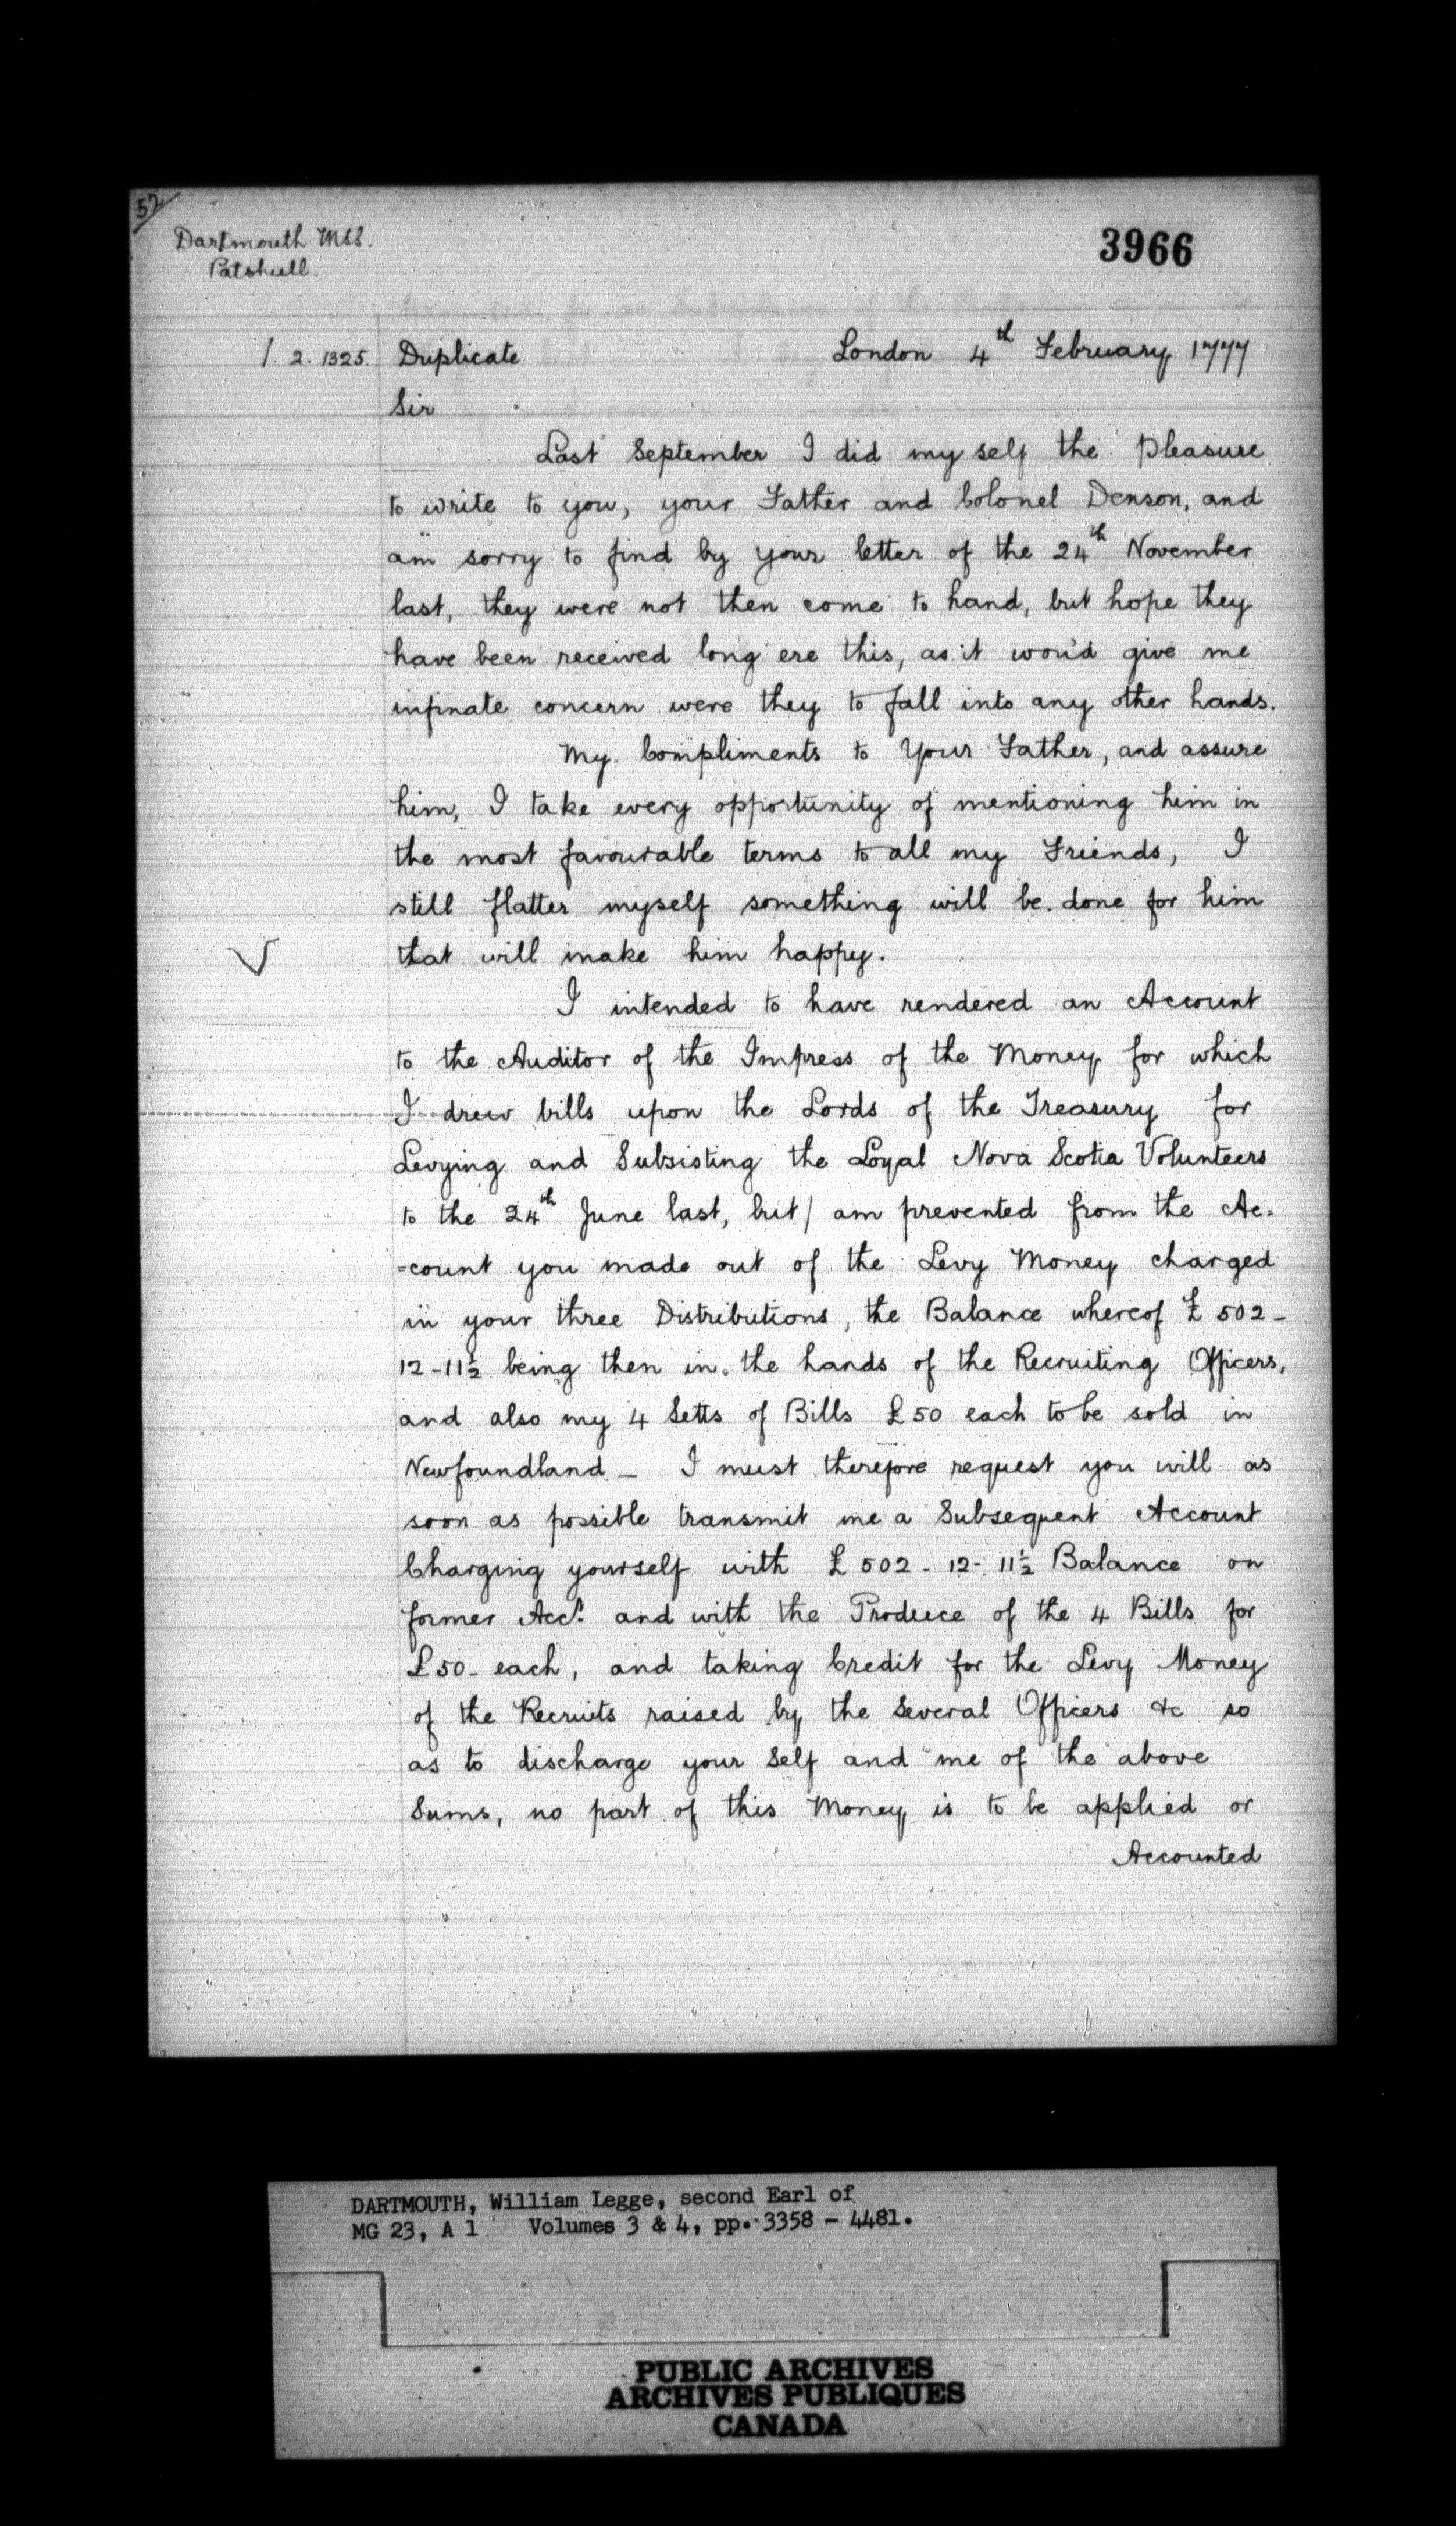 52
Dartmouth MSS.
Patshull.
3966
1. 2. 1325. Duplicate London 4th February 1777
Sir
Last September I did my self the Pleasure
to write to you, your Father and Colonel Denson, and
am sorry to find by your letter of the 24th November
last, they were not then come to hand, but hope they
have been received long ere this, as it wou'd give me
infinate concern were they to fall into any other hands.
My Compliments to Your Father, and assure
him, I take every opportunity of mentioning him in
the most favourable terms to all my Friends, I
still flatter myself something will be done for him
that will make him happy.
I intended to have rendered an Account
to the Auditor of the Impress of the Money for which
I drew bills upon the Lords of the Treasury for
Levying and Subsisting the Loyal Nova Scotia Volunteers
to the 24th June last, but I am prevented from the Ac-
=count you made out of the Levy Money charged
in your three Distributions, the Balance whereof £ 502-
12-11½ being then in the hands of the Recruiting Officers,
and also my 4 Setts of Bills £50 each to be sold in
Newfoundland _ I must therefore request you will as
soon as possible transmit me a Subsequent Account
Charging yourself with £ 502 - 12 - 11½ Balance on
former Acct. and with the Produce of the 4 Bills for
£50 - each, and taking Credit for the Levy Money
of the Recruits raised by the Several Officers &c so
as to discharge your Self and me of the above
Sums, no part of this Money is to be applied or
Accounted
DARTMOUTH, William Legge, second Earl of
MG 23, A 1 Volumes 3 & 4, pp. 3358 - 4481.
PUBLIC ARCHIVES
ARCHIVES PUBLIQUES
CANADA